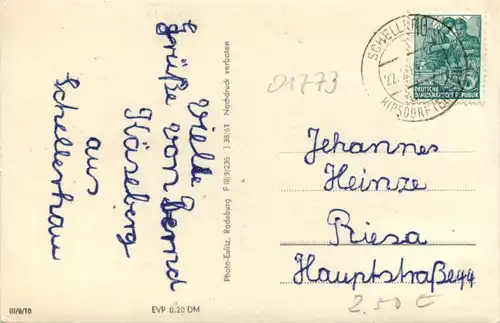 Viele
Grüße von Bernd
Käseberg
aus
Schellerhau
Photo-Eulitz, Radeburg F III/9/235 J 38/61 Nachdruck verboten
01773
SCHELLER
KIPSDORF
10
DEUTSCHE
DEMOKRATISCHE REPUBLIK
Jehannes
Heinze
Riesa
Hauptstraße 44
2.50 €
III/9/10
EVP 0,20 DM